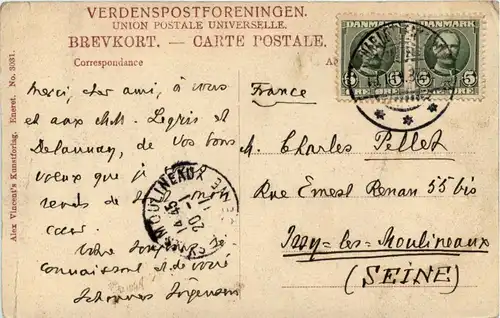 VERDENSPOSTFORENINGEN.
UNION POSTALE UNIVERSELLE.
BREVKORT. — CARTE POSTALE.
Correspondance
Alex Vincent's Kunstforlag. Eneret. No. 3031.
DANMARK DANMARK
5 5 5
ØRE ØRE
Merci, cher ami, à vous
et aux MM. Legris et
Delaunay, de vos bons
vœux que je
rends de
cœur.
Votre
connaissant et de
Johannes Jörgensen
MOULINEAUX
14 45
20 -1
SEINE
France
M. Charles Pellet
Rue Ernest Renan 55 bis
Issy-les-Moulineaux
(SEINE)